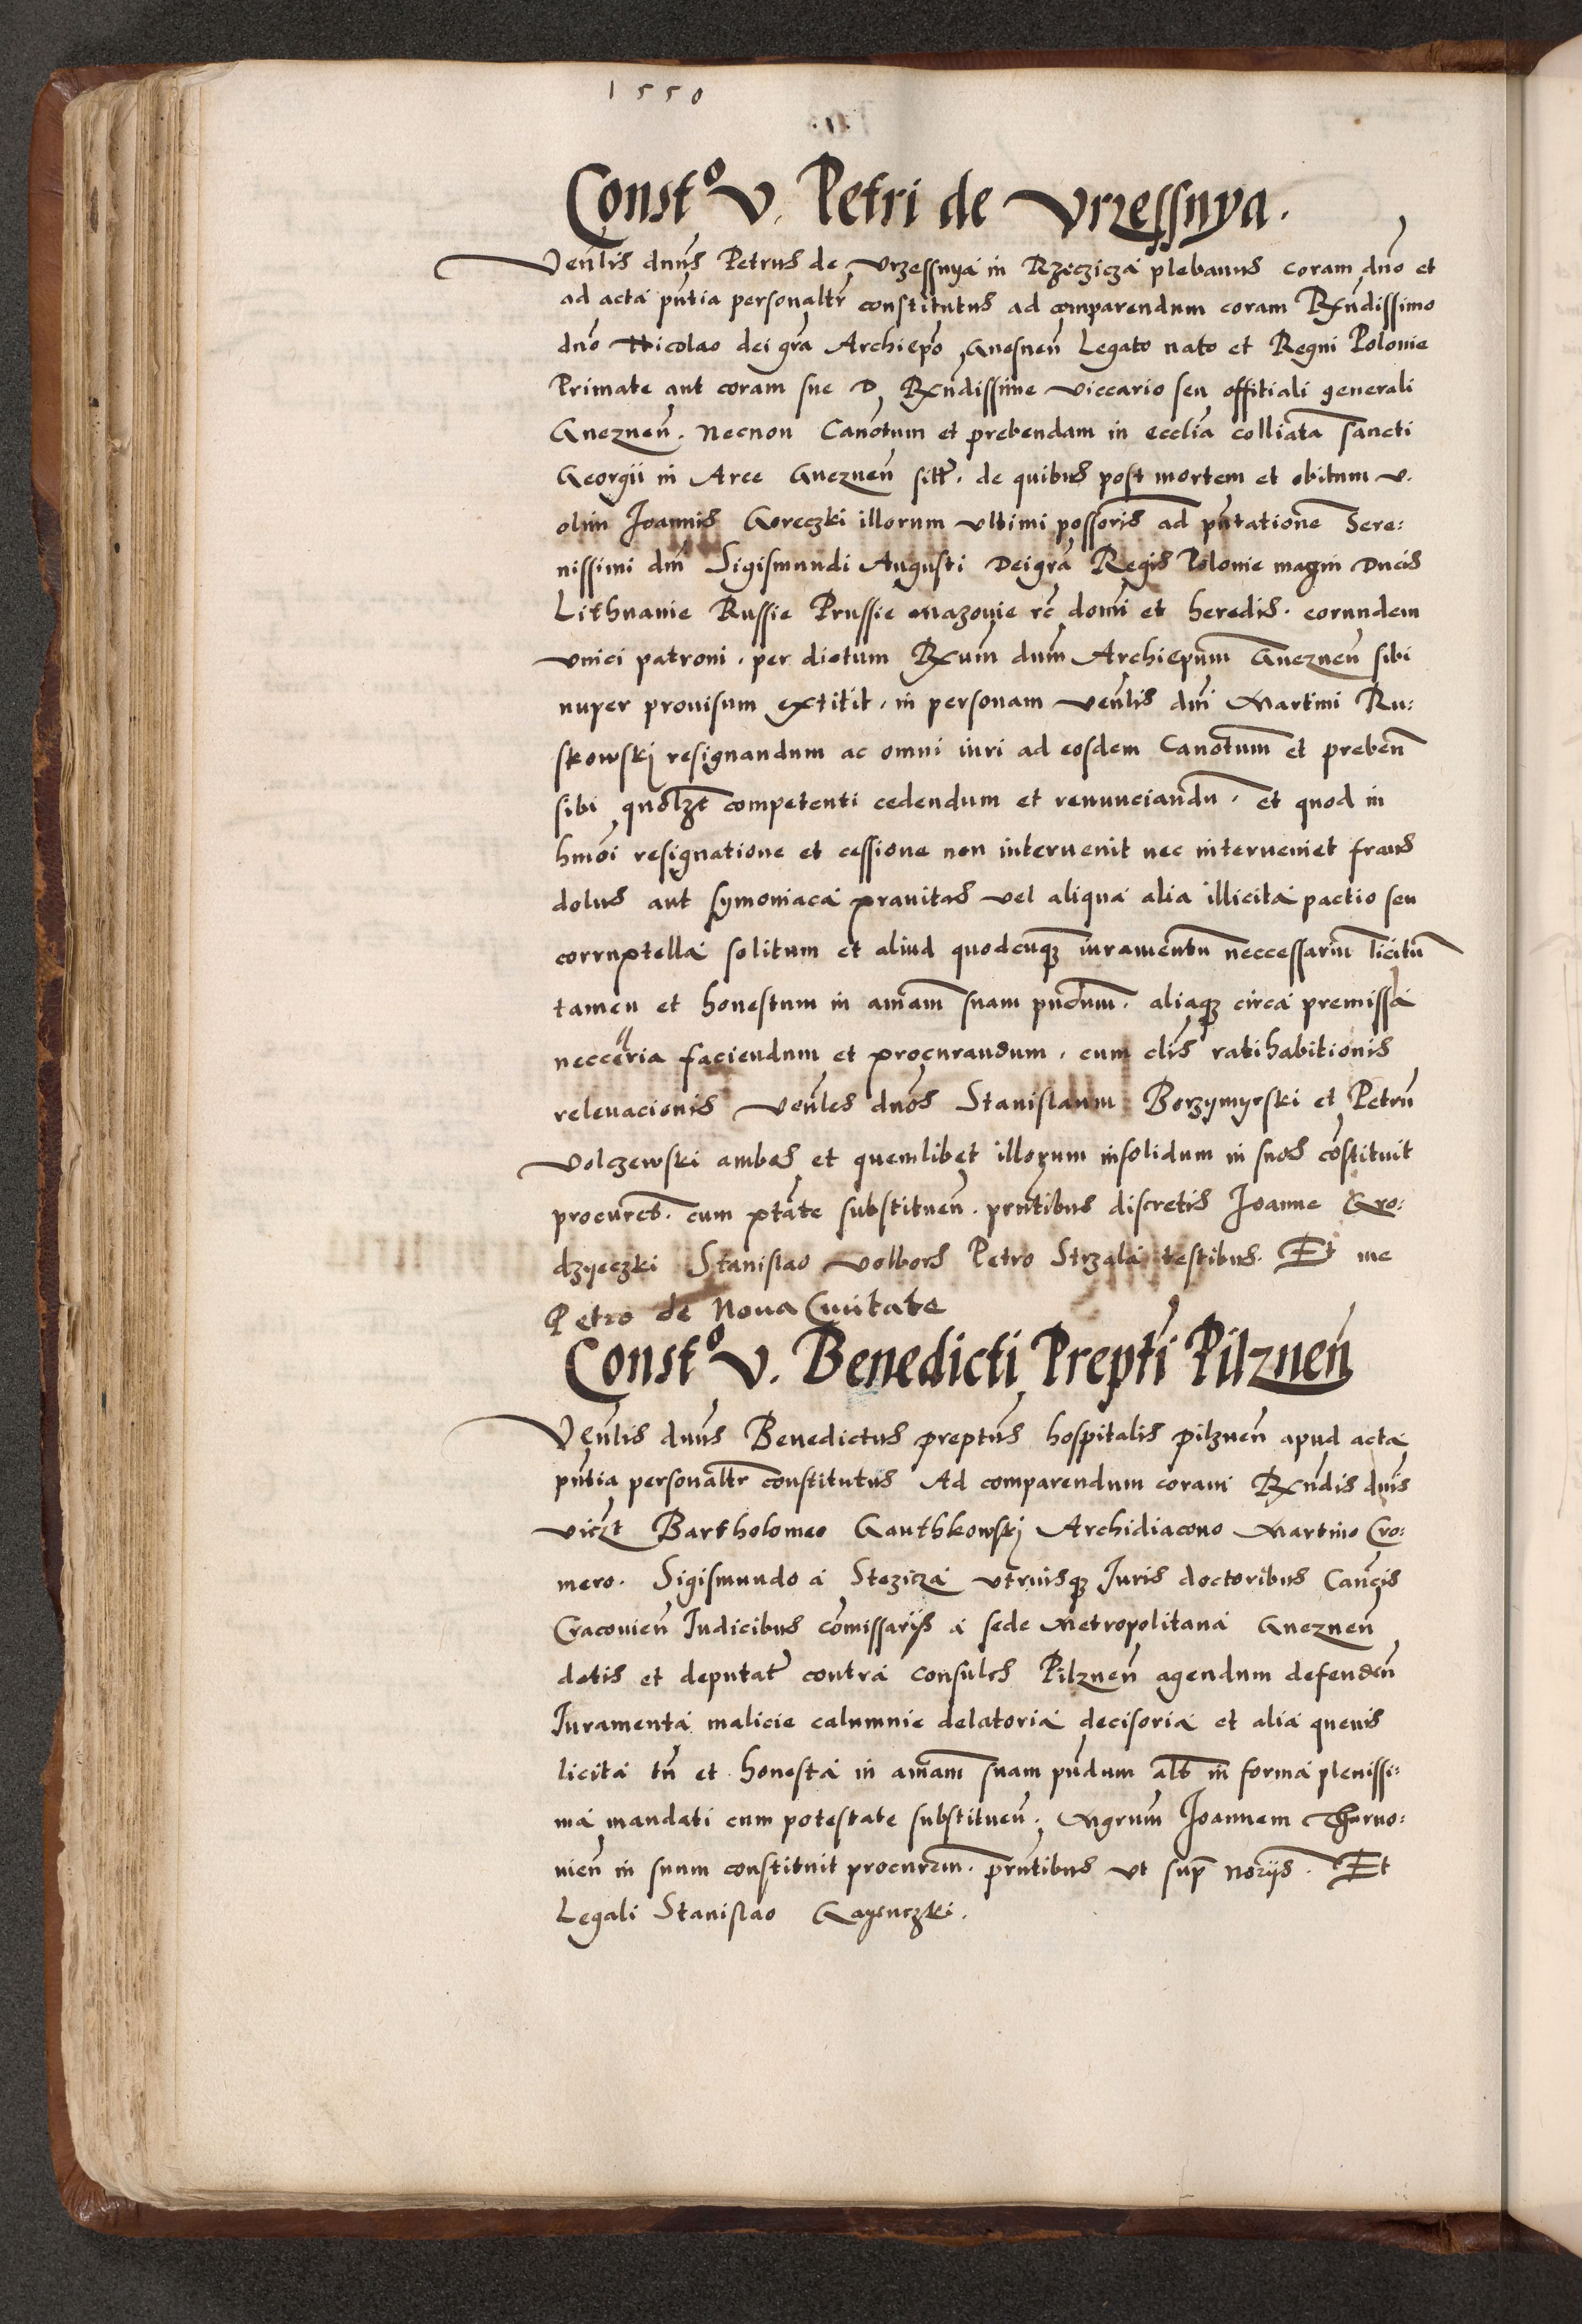 1550
Constº V. Petri de Vrzessnya.
Venlis dnus Petrus de Vrzessnya in Rzeczicza plebanus coram dno et
ad acta pntia personaltr constitutus ad comparendum coram Rxndissimo
dno Nicolao dei gra Archiepo Gnesnen Legato nato et Regni Polonie
Primate aut coram sue D. Rxndissime viccario seu offitiali generali
Gneznen. necnon Canotum et prebendam in ecclia colliata sancti
Georgii in Arce Gneznen sitt. de quibus post mortem et obitum v.
olim Joannis Goreczki illorum vltimi possoris ad pntatione Sere:
nissimi dni Sigismundi Augusti Dei gra Regis Polonie magni Ducis
Lithuanie Russie Prussie Mazouie rc domi et heredis. eorundem
vnici patroni. per dictum Rxum dum Archiepum Gneznen sibi
nuper prouisum extitit, in personam venlis dni Martini Ru:
skowskj resignandum ac omni iuri ad eosdem Canotum et preben
sibi quolzt competenti cedendum et renunciandu. et quod in
hmoi resignatione et cessione non interuenit nec interueniet fraus
dolus aut symoniaca prauitas vel aliqua alia illicita pactio seu
corruptella solitum et aliud quodcuqz iuramentu neccessariu licitu
tamen et honestum in amam suam pndum. aliaqz circa premissa
necceria faciendum et procurandum. cum clis ratihabitionis
releuacionis venles dnos Stanislaum Borzymyrski et Petru
Volczewski ambos et quemlibet illorum insolidum in suos costituit
procures. cum ptate substituen. prntibus discretis Joanne Gro:
dzyeczki Stanislao Volbors Petro Strzala testibus. Et me
Petro de Noua Ciuitate
Constº V. Benedicti Prepti Pilznen
Venlis dnus Benedictus preptus hospitalis pilznen apud acta
pntia personaltr constitutus Ad comparendum coram Rxndis dnis
viczt Bartholomeo Ganthkowskj Archidiacono Martino Cro:
mero. Sigismundo a Stezicza vtriusqz Juris doctoribus Cancis
Cracouien Judicibus comissarijs a sede Metropolitana Gneznen
datis et deputat contra consules Pilznen agendum defenden
Juramenta malicie calumnie delatoria decisoria et alia queuis
licita tn et honesta in amam suam pndum alt in forma plenissi:
ma mandati cum potestate substituen. Mgrum Joannem Tharno:
uien in suum constituit procurem. prntibus vt sup norijs. Et
Legali Stanislao